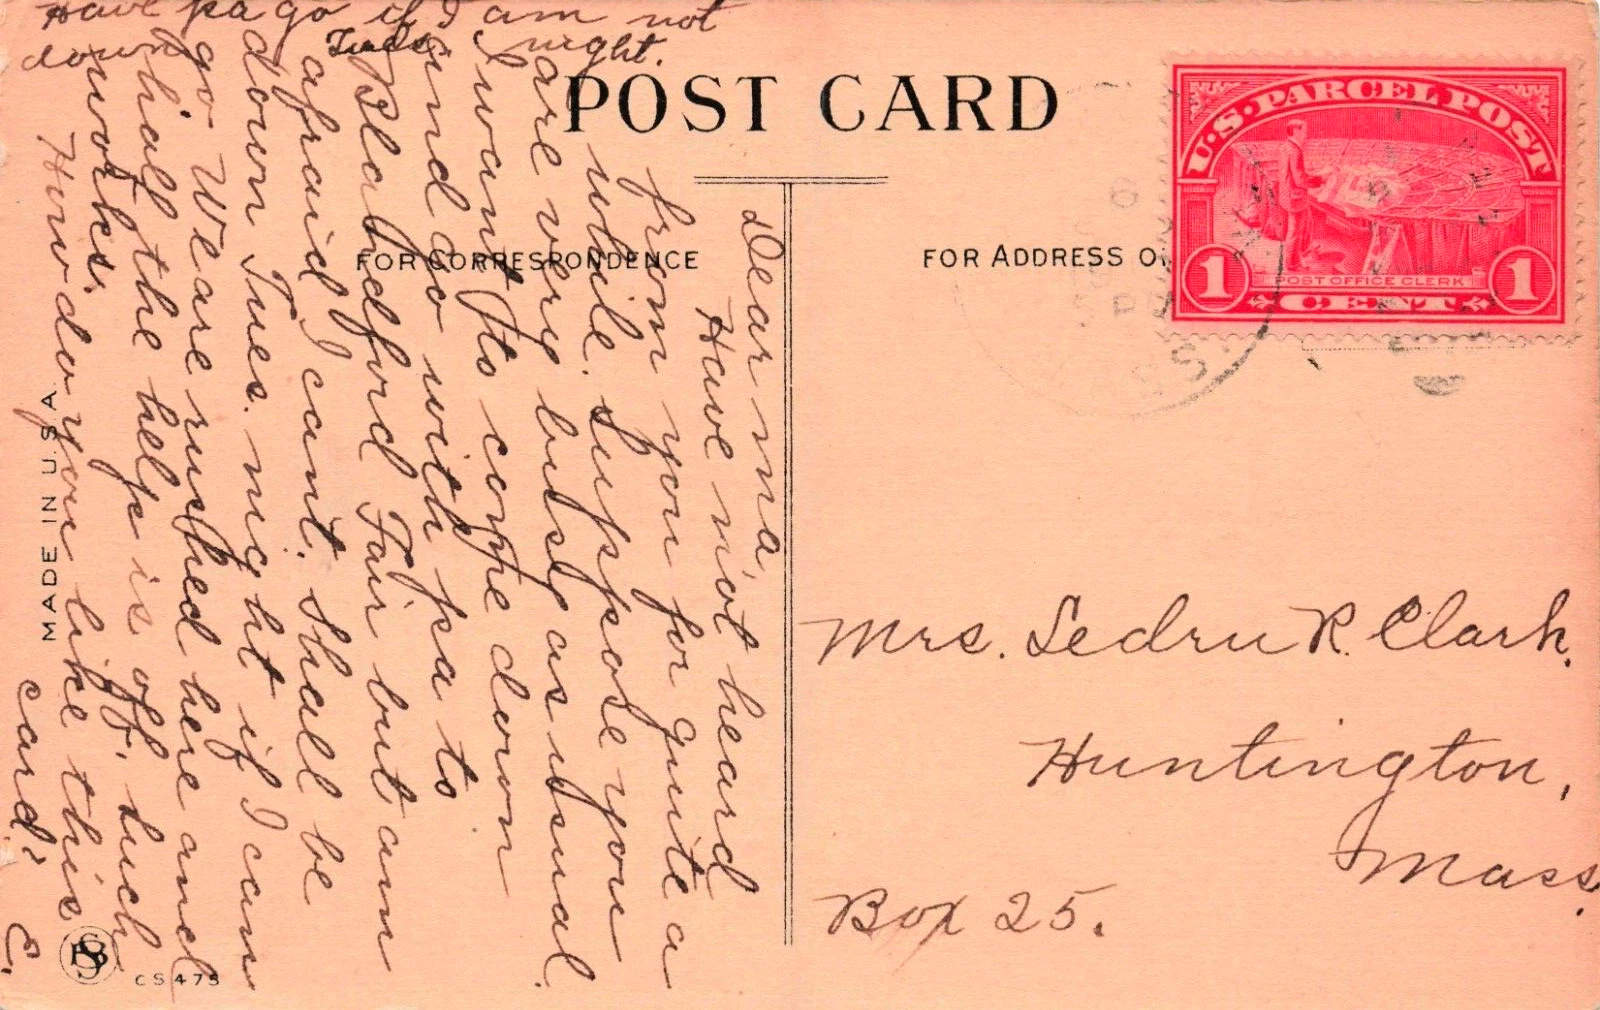 POST CARD
FOR CORRESPONDENCE
FOR ADDRESS O
U.S. PARCEL POST
1
POST OFFICE CLERK
1
CENT
6
SS.
Dear ma,
Have not heard
from you for quite a
while. Suppose you
are very busy as usual.
I want to come down
and go with pa to
Blandford Fair but am
afraid I cant. Shall be
down Tues. night if I can
go. We are rushed here and
half the help is off. Such
works.
How do you like this
card? E.
Have pa go if I am not
down Tues. night.
Mrs. Ledru R. Clark.
Huntington,
Mass.
Box 25.
MADE IN U.S.A
CS475